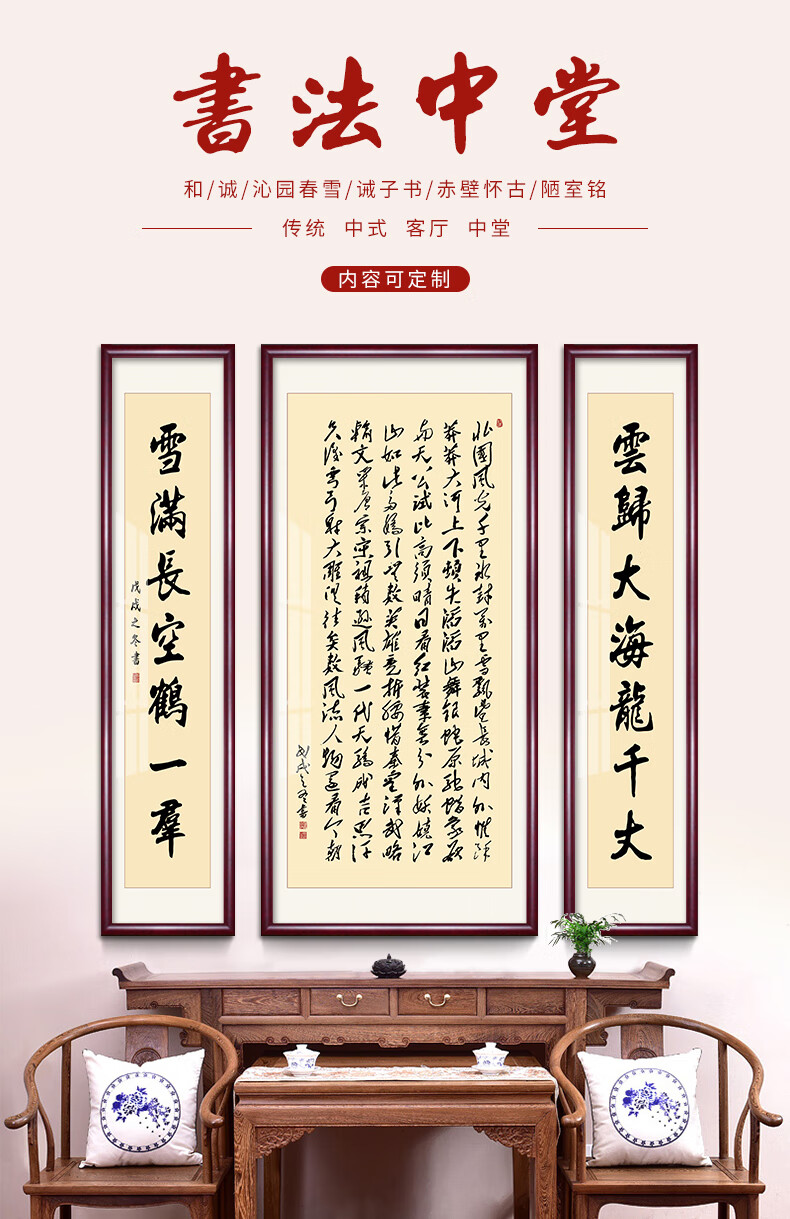 書法中堂
和/诚/沁园春雪/诫子书/赤壁怀古/陋室铭
传统 中式 客厅 中堂
内容可定制
雲歸大海龍千丈
北國風光千里冰封萬里雪飄望長城内外惟餘
莽莽大河上下頓失滔滔山舞銀蛇原馳蠟象欲
与天公試比高須晴日看红裝素裹分外妖嬈江
山如此多嬌引無數英雄競折腰惜秦皇漢武略
輸文采唐宗宋祖稍遜風騷一代天驕成吉思汗
只識彎弓射大雕俱往矣數風流人物還看今朝
戊戌之冬書
雪滿長空鶴一羣
戊戌之冬書